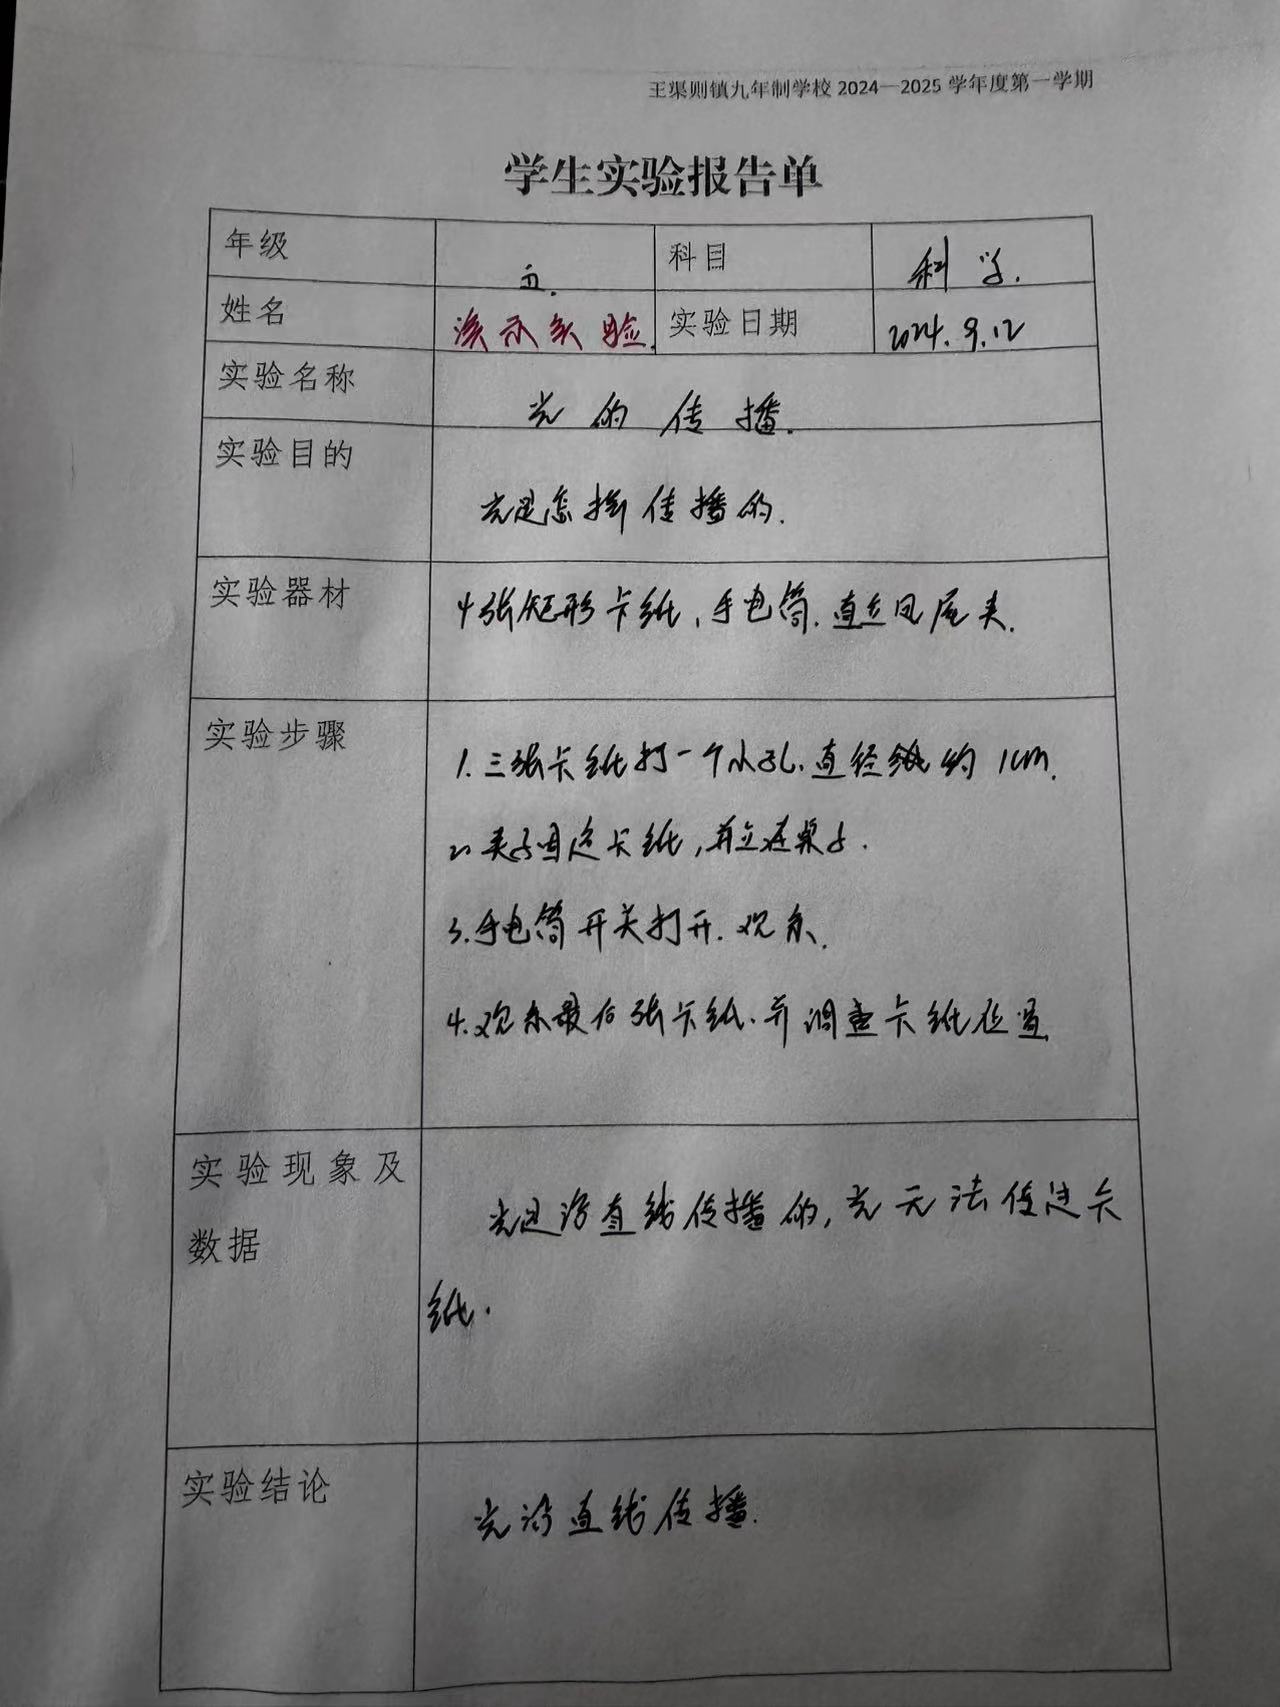 王渠则镇九年制学校 2024—2025 学年度第一学期
学生实验报告单
年级 五. 科目 科学.
姓名 演示实验. 实验日期 2024.9.12
实验名称 光的传播.
实验目的 光是怎样传播的.
实验器材 4张矩形卡纸,手电筒.直立凤尾夹.
实验步骤
1.三张卡纸打一个小孔.直径 约1cm.
2.夹子固定卡纸,并立在桌子.
3.手电筒开关打开.观察.
4.观察最后张卡纸.并调整卡纸位置
实验现象及
数据
光是沿直线传播的,光无法传过卡
纸.
实验结论 光沿直线传播.